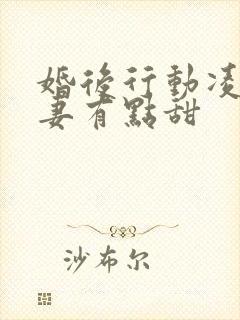 婚後行動凌
妻有點甜
沙布尔